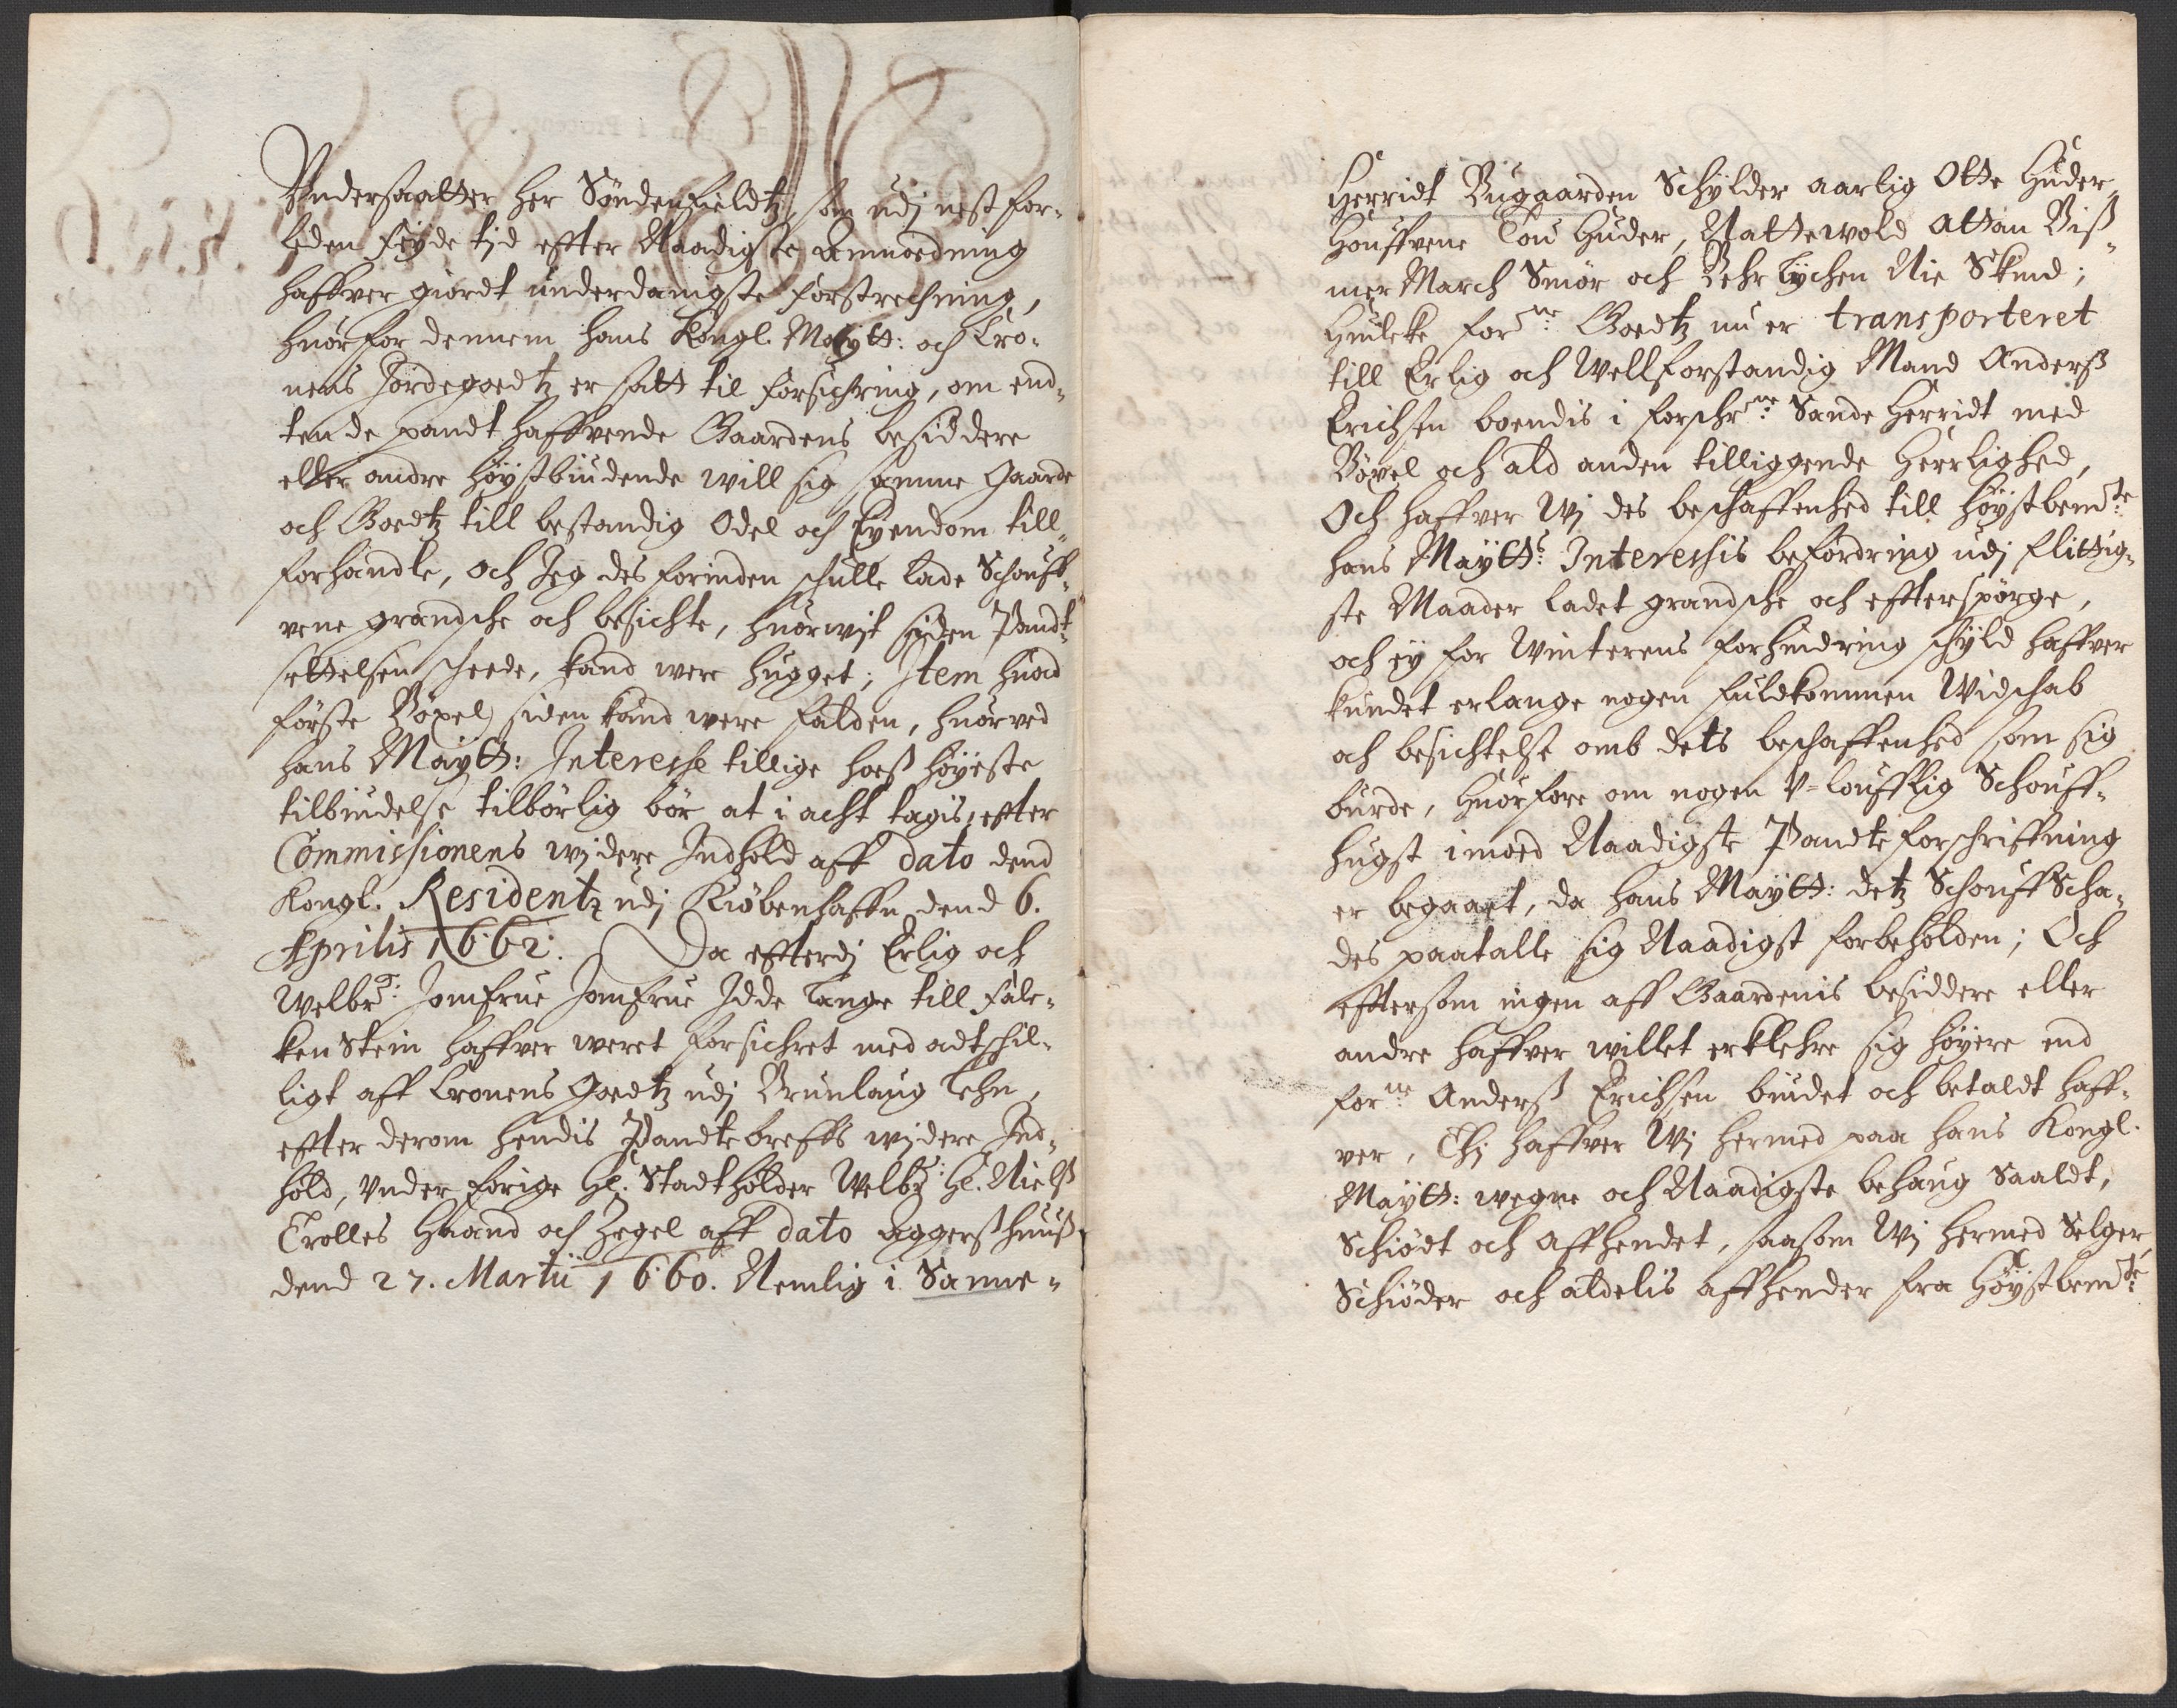 Undersaatter her Søndenfieldtz, som udj nest for-
leden Feyde tjd effter Naadigste Annordning
haffver giordt underdanigste forstrechning,
huorfor dennem hans Kongl. Maytt: och Cro-
nens Jordegoedtz er satt til forsichring, om end-
ten de pandt haffvende Gaardens besiddere
eller andre høystbiudende will sig samme Gaarde
och Goedtz till bestandig Odel och Eyendom till-
forhandle, och Jeg des forinden schulle lade Schouff-
vene grandsche och besichte, huorwit siden Pandt-
settelsen scheede, kand were hugget; Item huad
første Bøxel siden kand were falden, huorved
hans Maytt: Interesse tillige hoes høyeste
tilbiudelse tilbørlig bør at i acht tagis, effter
Commissionens wjdere Indhold aff dato dend
Kongl. Residentz udj Kiøbenhaffn dend 6.
Aprilis 1662. Da efterdj Erlig och
Welbr: Jomfrue Jomfrue Idde Lange till Fale-
kenstein haffver weret forsichret med adtschil-
ligt aff Cronens Goedtz udj Brunlaug Lehn,
effter derom hendis Pandtebreffs wjdere Ind-
hold, under forige Hr. Stadtholder Welbr: Hr. Nielß
Trolles Haand och Zegel aff dato Aggerßhuuß
dend 27. Martii 1660. Nemlig i Sanne-
Herridt Bugaarden Schylder aarlig Otte Huder,
Houffvene Tou Huder, Nattewold Attan Biß-
mer March Smør och Behrlychen Nie Skind;
Huilcke forne: Goedtz nu er transporteret
till Erlig och Wellforstandig Mand Anderß
Erichsen boendis i forschrne: Sande Herridt med
Bøxel och ald anden tilliggende Herrlighed,
Och haffver Wj des beschaffenhed till høystbemte:
hans Maytts: Interessis befordring udj flittig-
ste Maader ladet grandsche och effterspørge,
och ey for Winterens forhindring schyld haffver
kundet erlange nogen fuldkommen Widschab
och besichtelse omb dets beschaffenhed som sig
burde, Huorfore om nogen U-loufflig Schouff-
hugst imoed Naadigste Pandteforschriffning
er begaaet, da hans Maytt: detz Schouff Scha-
des paatalle sig Naadigst forbeholden; Och
efftersom ingen aff Gaardenis besiddere eller
andre haffver willet erklehre sig høyere end
forne: Anderß Erichsen biudet och betaldt haff-
ver, Thj haffver Wj hermed paa hans Kongl.
Maytt: wegne och Naadigste behaug Saaldt,
Schiødt och Affhendet, saasom Wj hermed Selger,
Schiøder och aldelis affhender fra Høystbemte: